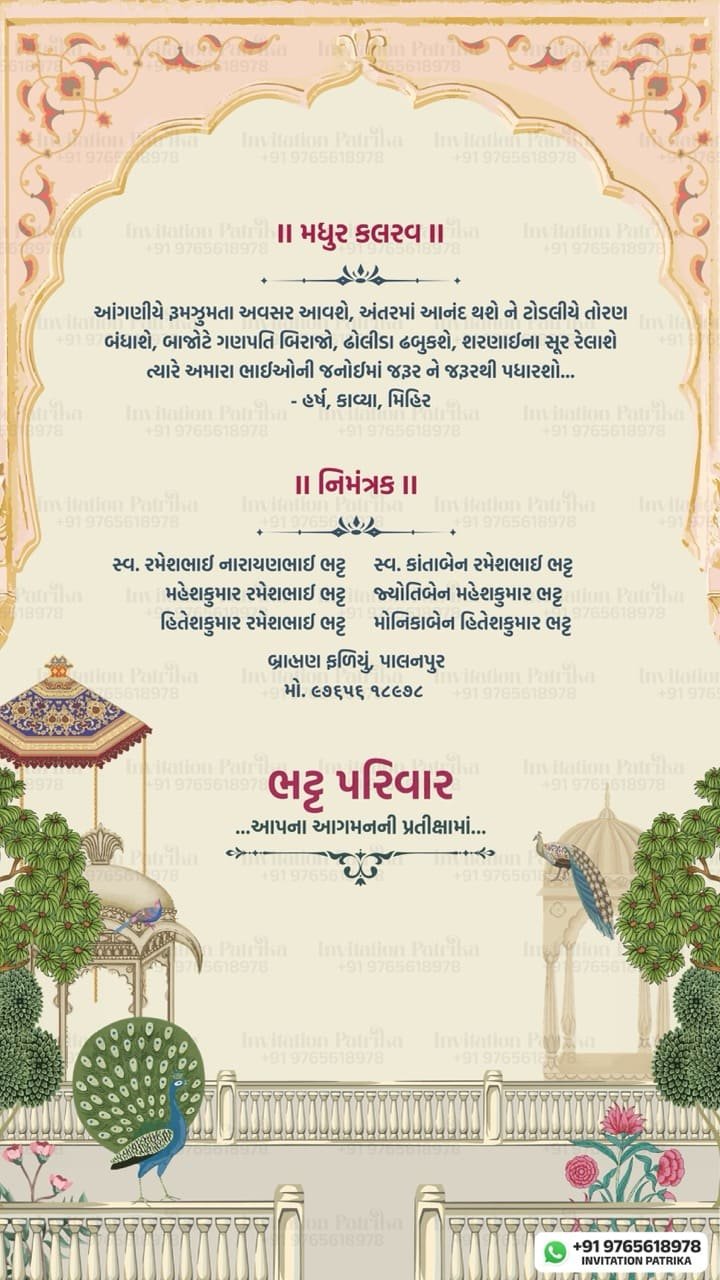 ॥ મધુર કલરવ ॥
આંગણીયે રૂમઝુમતા અવસર આવશે, અંતરમાં આનંદ થશે ને ટોડલીયે તોરણ
બંધાશે, બાજોટે ગણપતિ બિરાજો, ઢોલીડા ઢબુકશે, શરણાઈના સૂર રેલાશે
ત્યારે અમારા ભાઈઓની જનોઈમાં જરૂર ને જરૂરથી પધારશો...
- હર્ષ, કાવ્યા, મિહિર
॥ નિમંત્રક ॥
સ્વ. રમેશભાઈ નારાયણભાઈ ભટ્ટ સ્વ. કાંતાબેન રમેશભાઈ ભટ્ટ
મહેશકુમાર રમેશભાઈ ભટ્ટ જ્યોતિબેન મહેશકુમાર ભટ્ટ
હિતેશકુમાર રમેશભાઈ ભટ્ટ મોનિકાબેન હિતેશકુમાર ભટ્ટ
બ્રાહ્મણ ફળિયું, પાલનપુર
મો. ૯૭૬૫૬ ૧૮૯૭૮
ભટ્ટ પરિવાર
...આપના આગમનની પ્રતીક્ષામાં...
+91 9765618978
INVITATION PATRIKA
Invitation Patrika
+91 9765618978